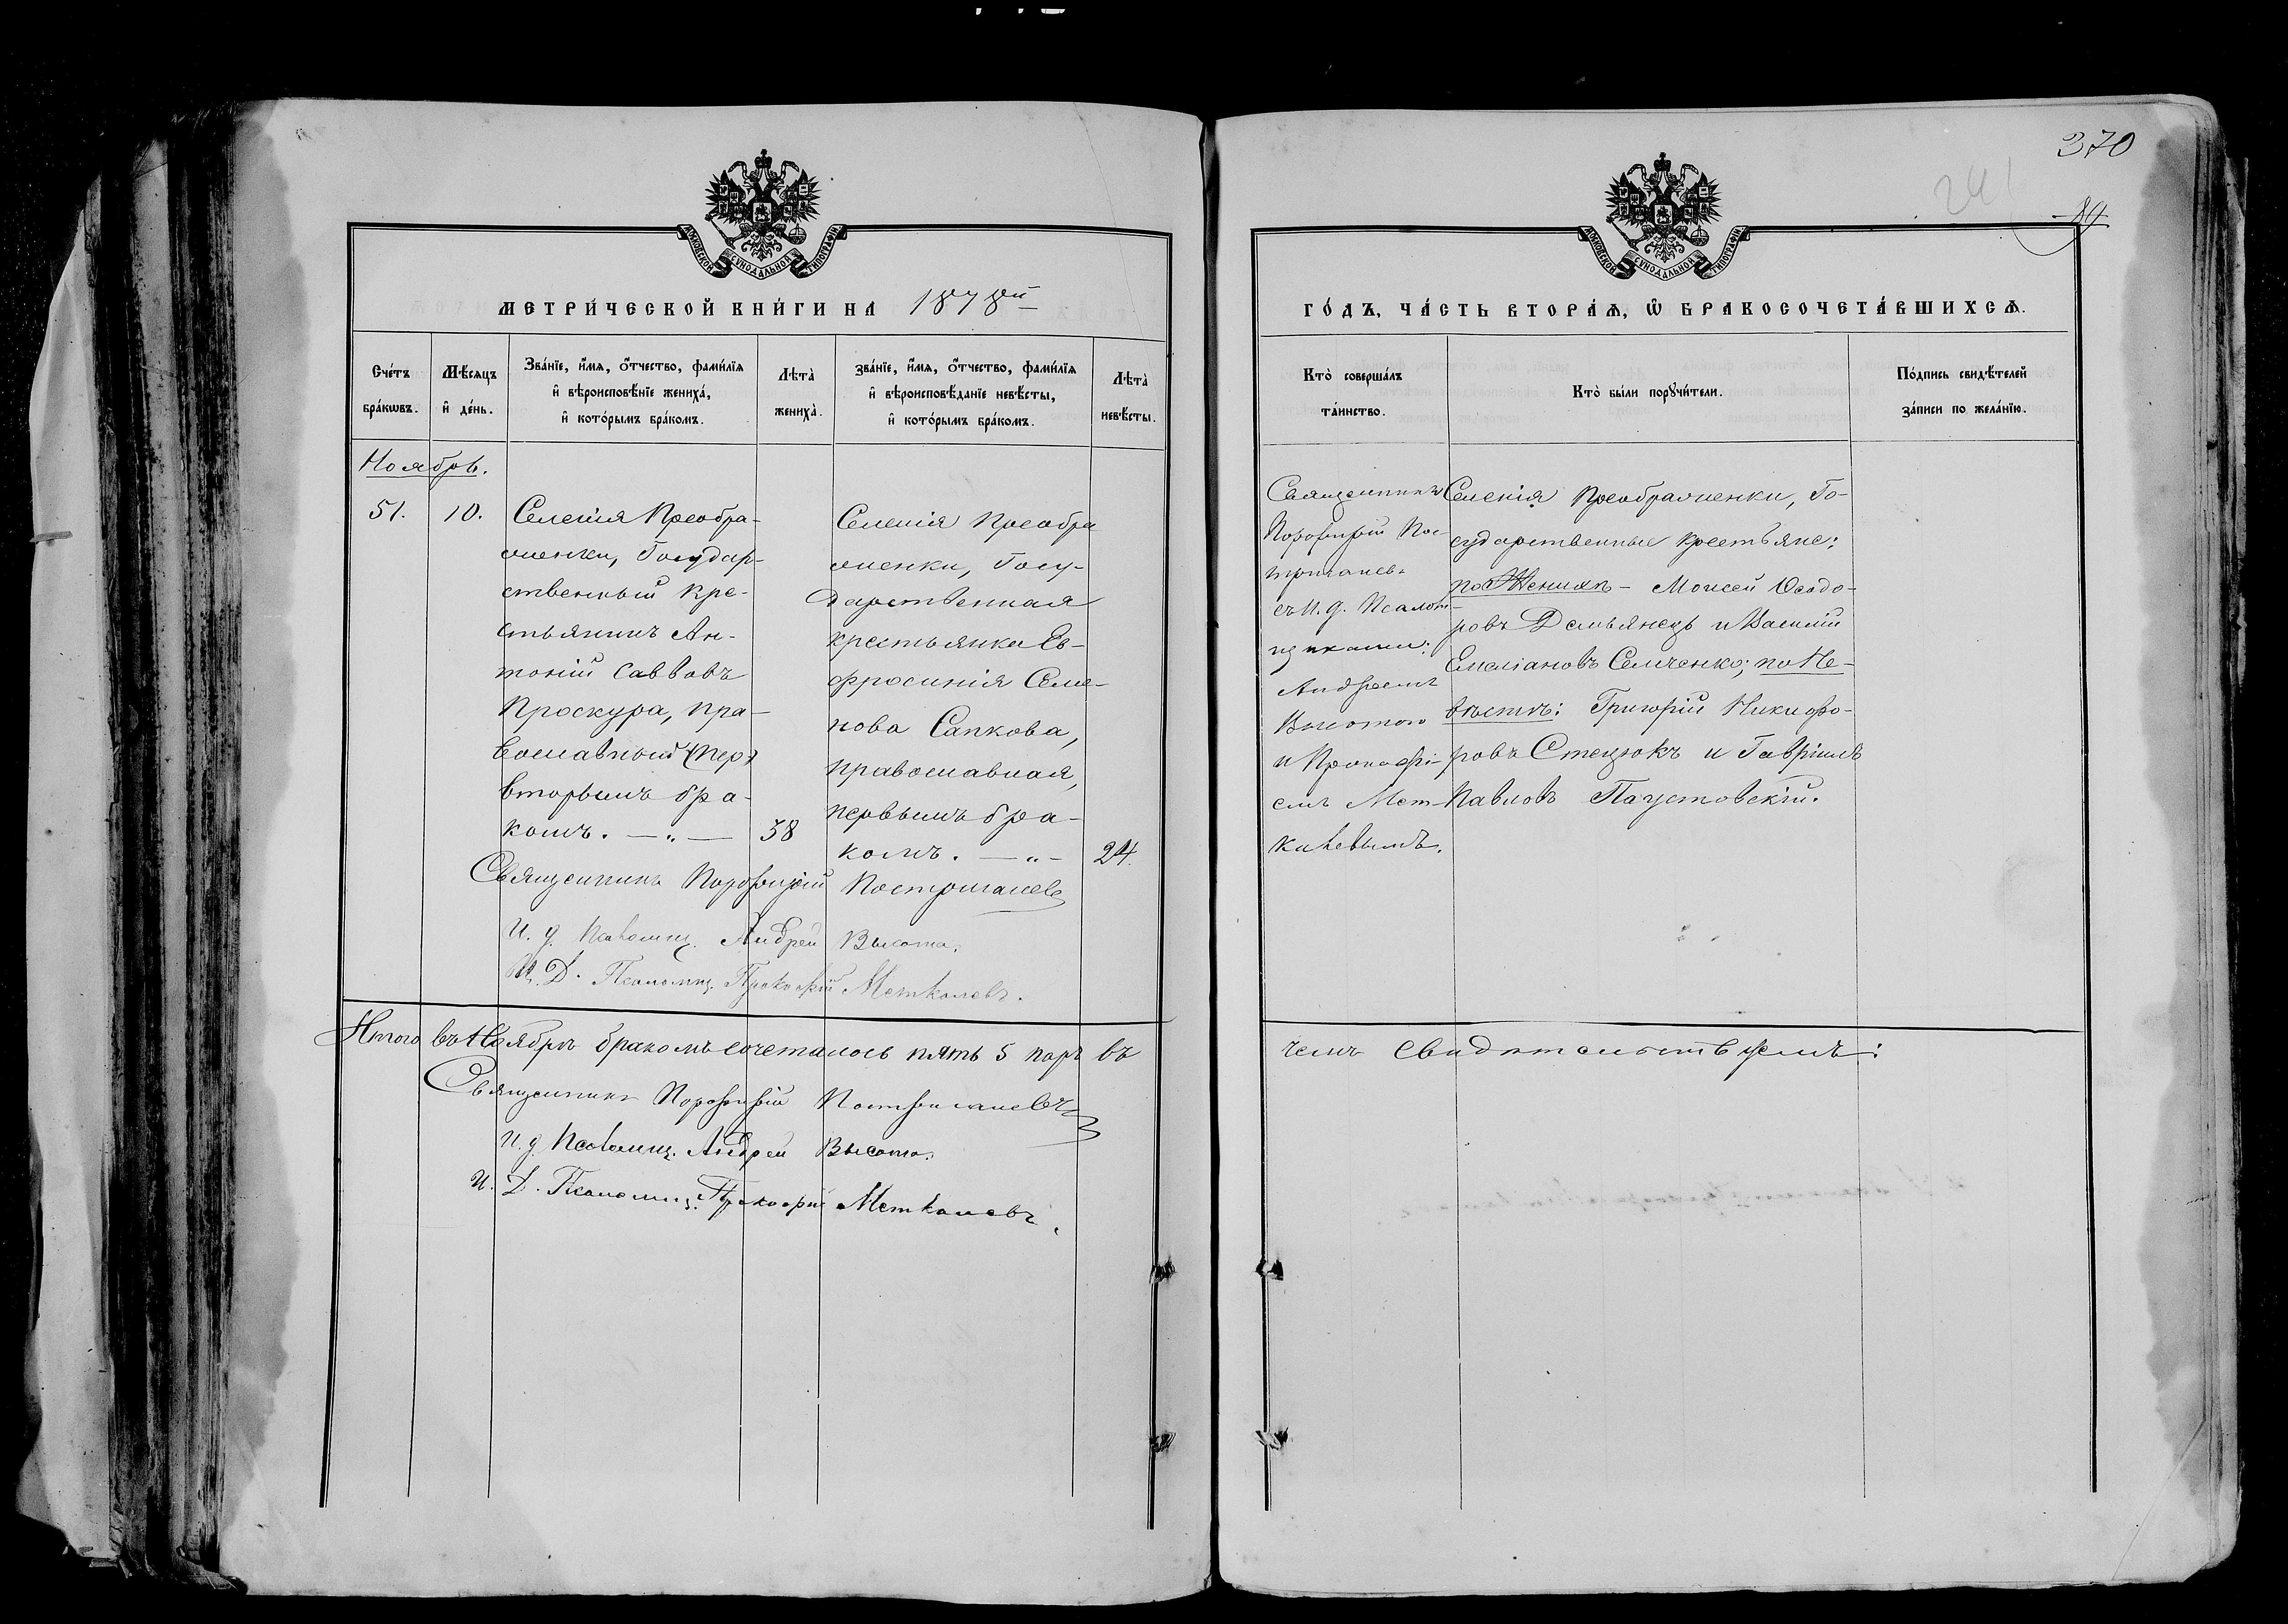 370
241
89
МОСКОВСКОЙ СѴНОДАЛЬНОЙ ТИПОГРАФІИ
МЕТРИ́ЧЕСКОЙ КНИ́ГИ НА 1878й
Сче́тъ бра́кѡвъ.
Мѣ́сяцъ и҆ де́нь.
Зва́нїе, и҆́мя, ѻ҆́тчество, фами́лїя
и҆ вѣроисповѣ́нїе жениха̀,
и҆ кото́рымъ бра́комъ.
Лѣта̀ жениха̀.
зва́нїе, и҆́мя, ѻ҆́тчество, фами́лїя
и҆ вѣроисповѣ́данїе невѣ́сты,
и҆ кото́рымъ бра́комъ.
Лѣта̀ невѣ́сты.
Ноябрь.
51.
10.
Селенія Преобра-
женки, Государ-
ственный кре-
стьянинъ Ан-
тоній Саввовъ
Проскура, пра-
вославный (пер)
вторымъ бра-
комъ. — „ —
38
Селенія Преобра
женки, Госу-
дарственная
крестьянка Ев-
фросинія Семе-
нова Сапкова,
православная,
первымъ бра-
комъ. — „ —
24.
Священникъ Порфирій Постригачевъ
И. д. Псаломщ. Андрей Высота.
И. Д. Псаломщ. Прокофій Меткалевъ.
Итого въ Ноябрѣ бракомъ сочеталось пять 5 паръ въ
Священникъ Порфирій Постригачевъ
И. д. Псаломщ. Андрей Высота.
И. Д. Псаломщ. Прокофій Меткалевъ.
МОСКОВСКОЙ СѴНОДАЛЬНОЙ ТИПОГРАФІИ
ГО́ДЪ, ЧА́СТЬ ВТОРА́Ѧ, Ѡ҆ БРАКОСОЧЕТА́ВШИХСѦ.
Кто̀ соверша́лъ
та́инство.
Кто̀ бы́ли порꙋчи́тели.
По́дпись свидѣ́телей
за́писи по жела́нїю.
Священникъ
Порфирій Пос-
тригачевъ
съ И. д. Псалом-
щиками:
Андреемъ
Высотою
и Прокофі-
емъ Мет-
калевымъ.
Селенія Преображенки, Го-
сударственные крестьяне:
по Женихѣ – Моисей Ѳеодо-
ровъ Демьянецъ и Василій
Емеліановъ Семченко; по Не-
вѣстѣ: Григорій Никифо-
ровъ Стецюкъ и Гавріилъ
Павловъ Паустовскій.
чемъ свидѣтельствуемъ: